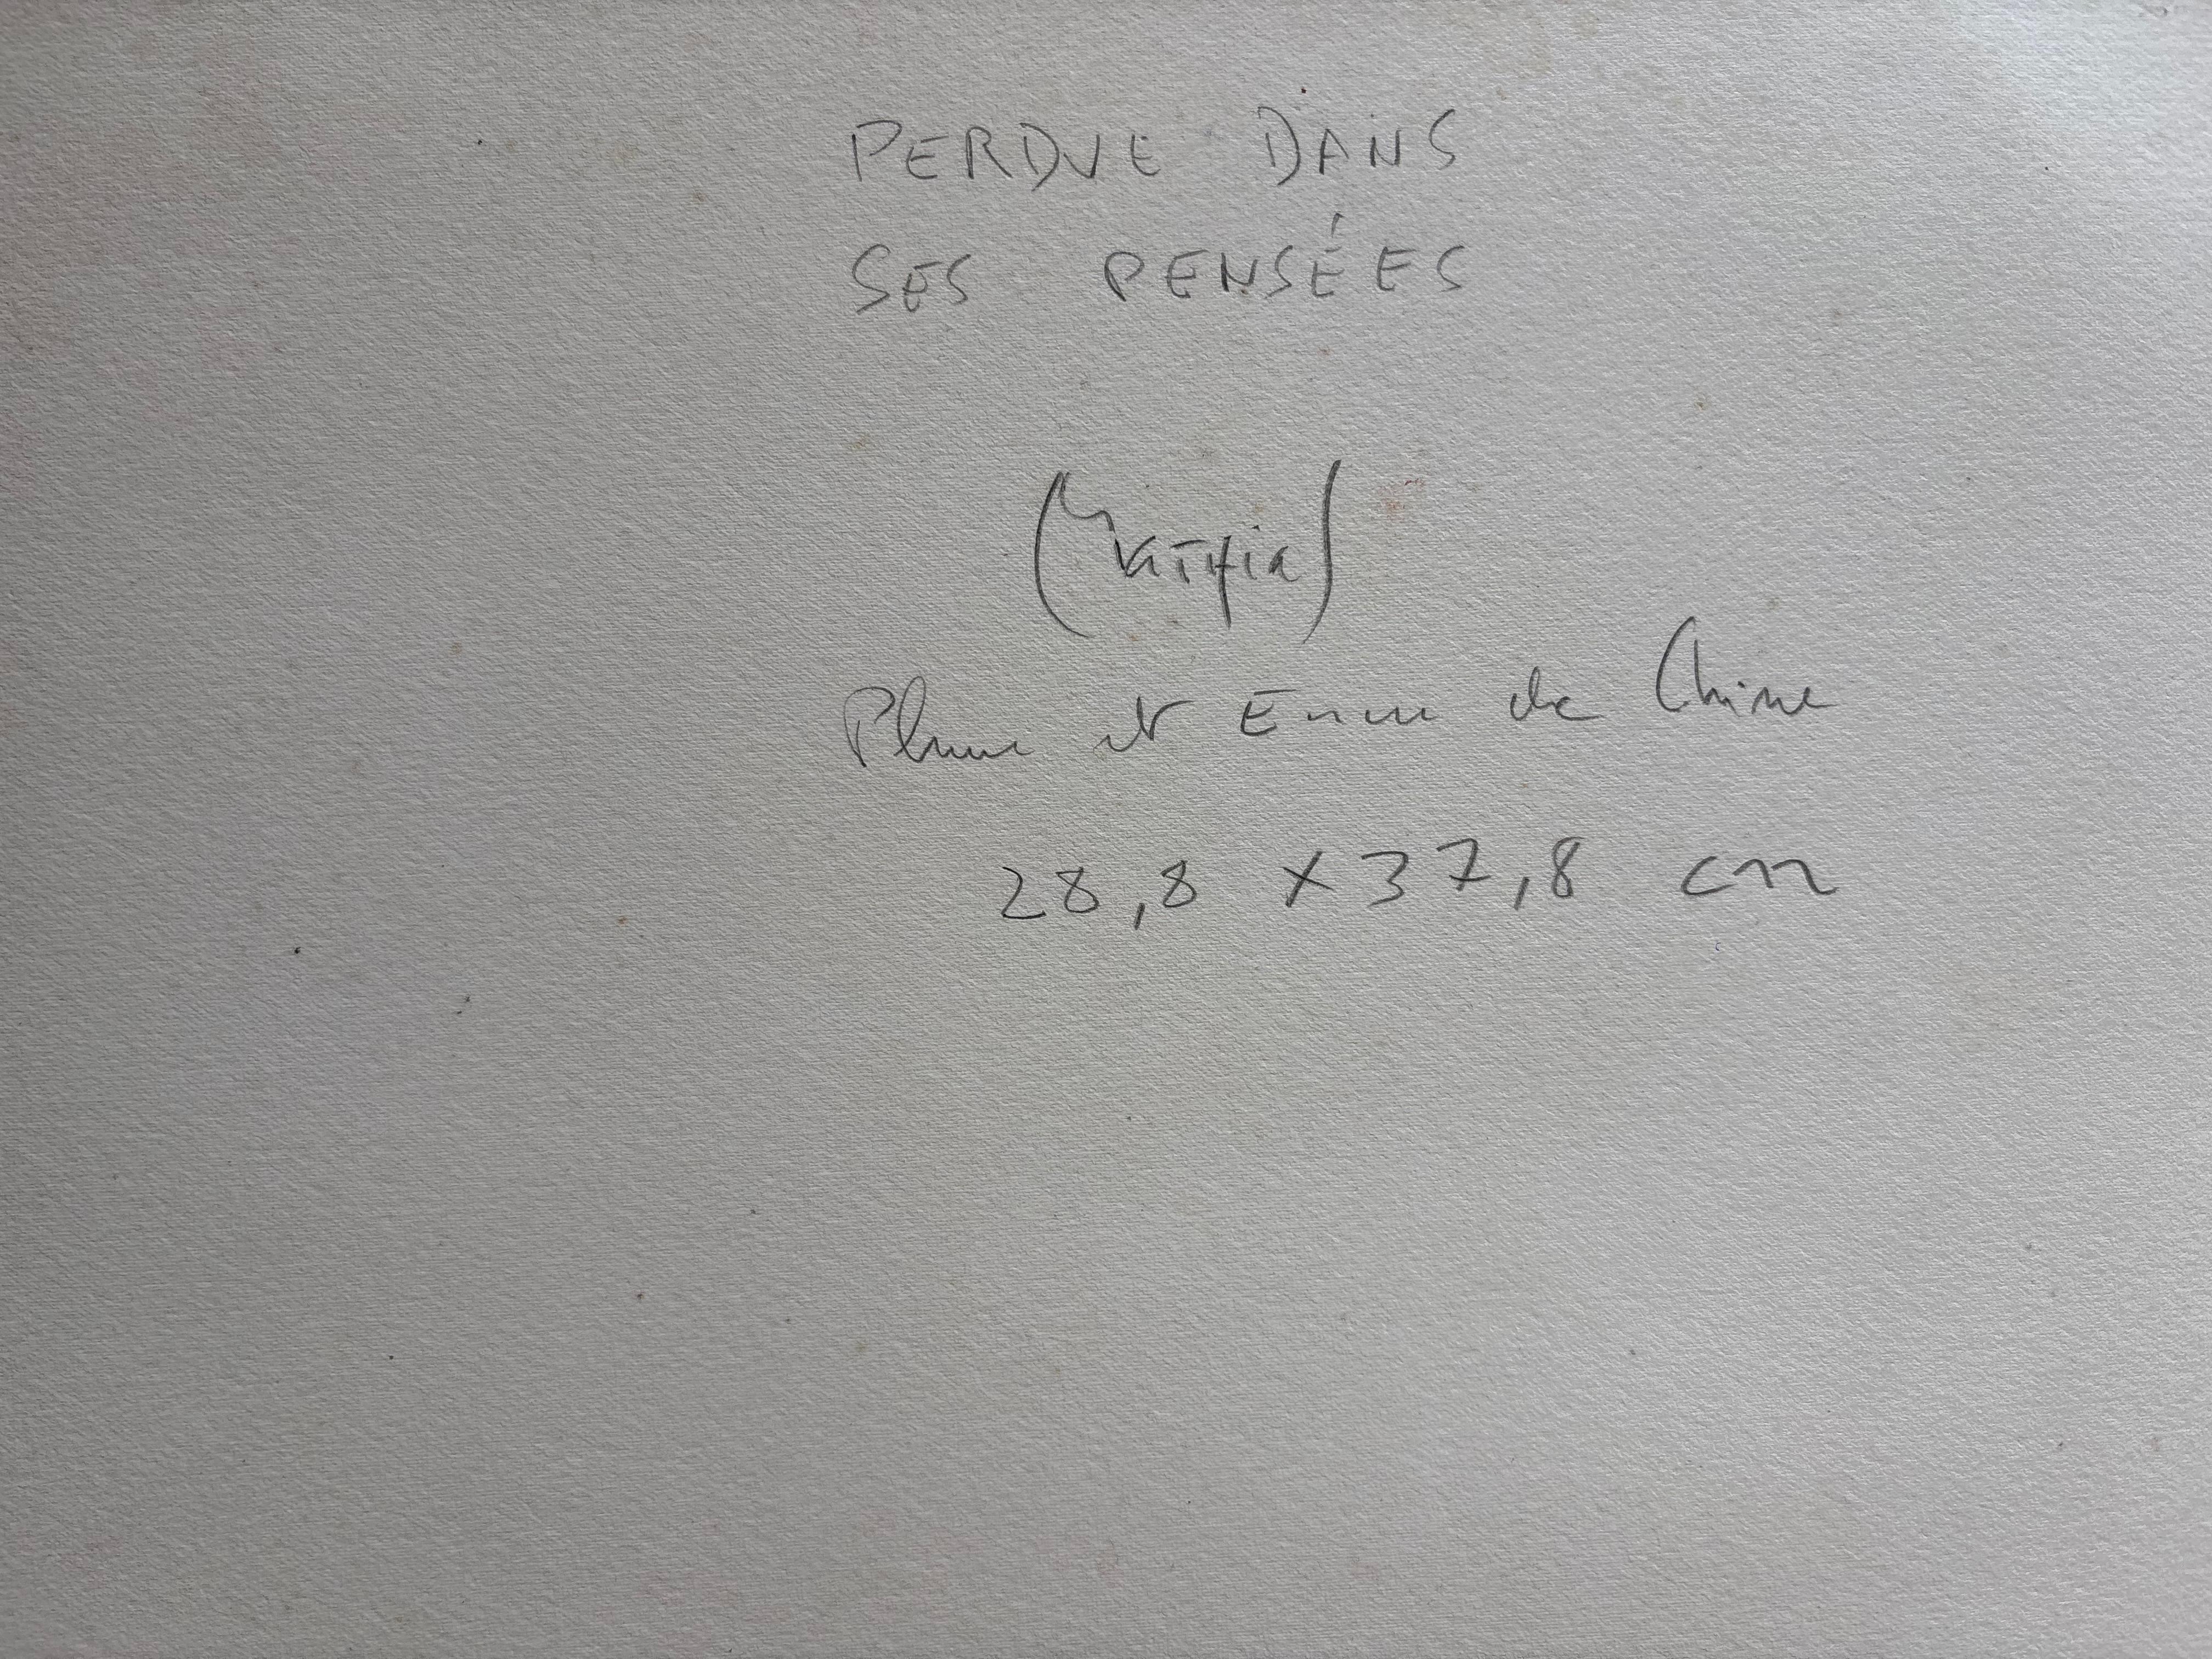 PERDUE DANS
SES PENSÉES
Plume et Encre de Chine
28,8 x 37,8 cm